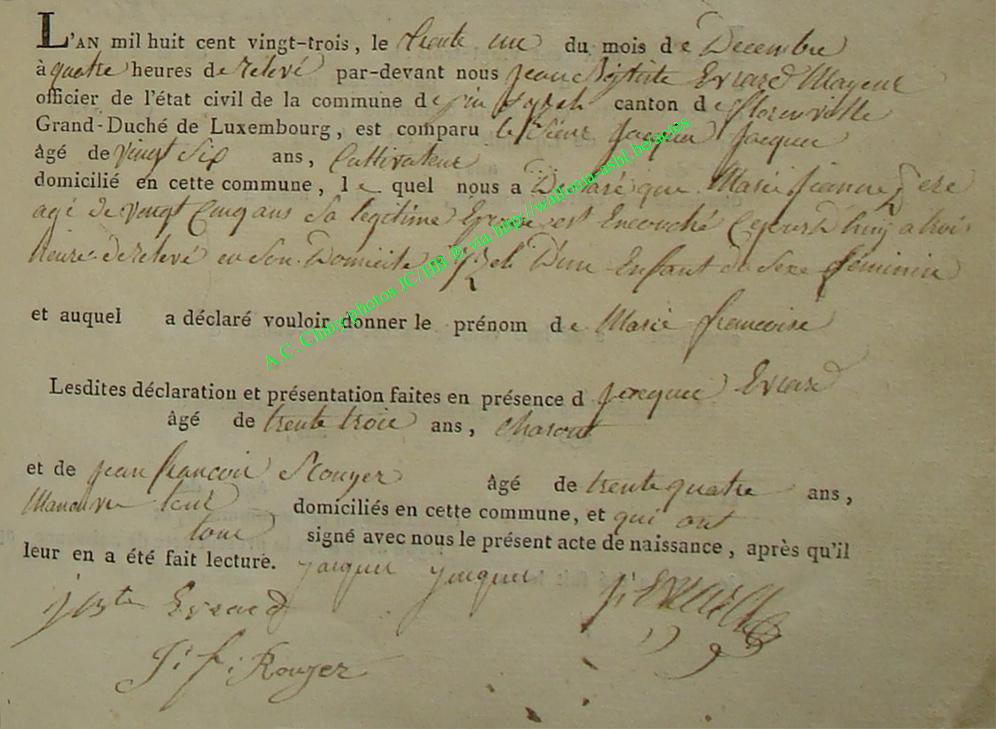 L'AN mil huit cent vingt-trois, le trente un du mois de Decembre
à quatre heures de relevé par-devant nous jean Baptiste Evrard Mayeur
officier de l'état civil de la commune de canton de florenville
Grand-Duché de Luxembourg, est comparu le Sieur Jacques Jacques
âgé de vingt Six ans, Cultivateur
domicilié en cette commune, le quel nous a Declaré que Marie jeanne
agé de vengt Cinq ans Sa legitime Epouse est Encouché Cejourd'huy a trois
heure de relevé en Son Domicile D'un Enfant de Sexe féminin
et auquel a déclaré vouloir donner le prénom de Marie francoise
Lesdites déclaration et présentation faites en présence d jacques Evrard
âgé de trente trois ans, charon
et de jean françois Rouyer âgé de trente quatre ans,
Manouvre tous domiciliés en cette commune, et qui ont
tous signé avec nous le présent acte de naissance, après qu'il
leur en a été fait lecture. jacques jacques
Evrard
J: f: Rouyer
A.C. Chiny photos JC/HB ® via http://wallonia-asbl.be/actes